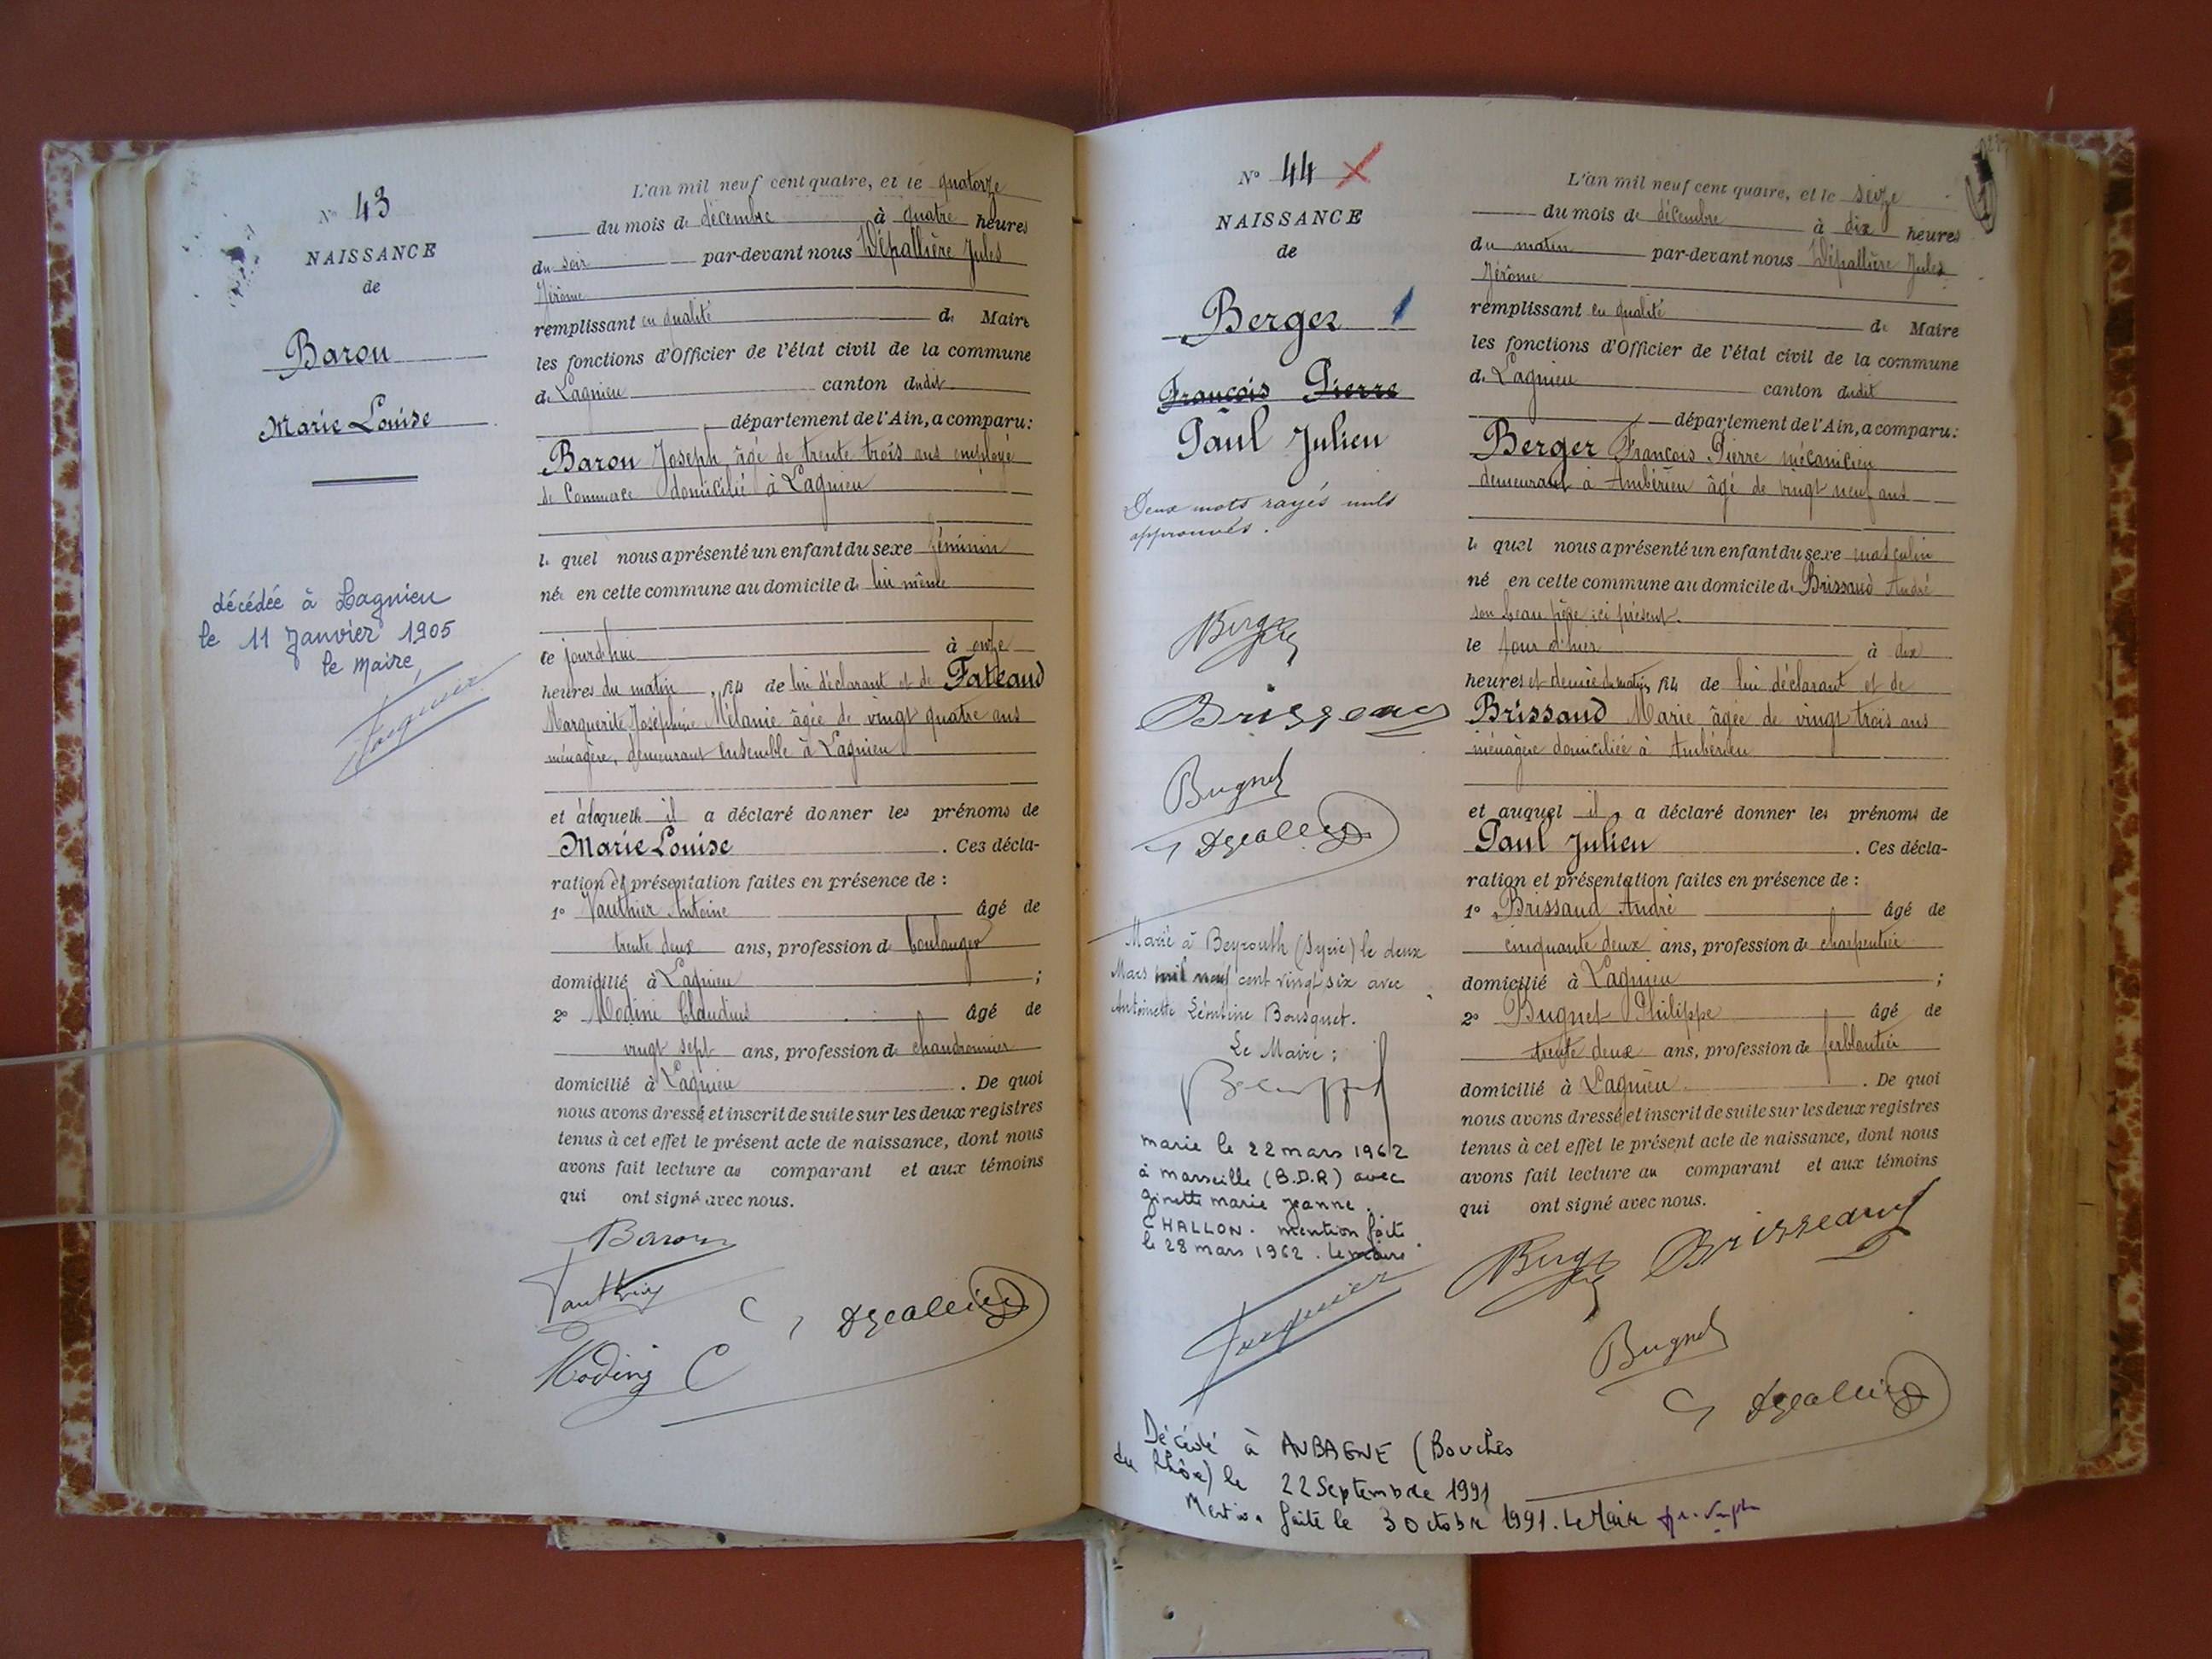 N° 43
NAISSANCE
de
Baron
Marie Louise
décédée à Lagnieu
le 11 Janvier 1905
le Maire,
L'an mil neuf cent quatre, et le quatorze
du mois de décembre à quatre heures
du soir par-devant nous Dépallière Jules
Jérôme
remplissant en qualité de Maire
les fonctions d'Officier de l'état civil de la commune
de Lagnieu canton dudit
département de l'Ain, a comparu:
Baron Joseph, âgé de trente trois ans employé
de Commerce domicilié à Lagnieu
lequel nous a présenté un enfant du sexe féminin
née en cette commune au domicile de lui même
ce jourd'hui à onze
heures du matin, fille de lui déclarant et de
Marguerite Joséphine Mélanie âgée de vingt quatre ans
ménagère, demeurant ensemble à Lagnieu
et à laquelle il a déclaré donner les prénoms de
Marie Louise. Ces décla-
ration et présentation faites en présence de :
1° Vauthier Antoine âgé de
trente deux ans, profession de boulanger
domicilié à Lagnieu ;
2° Modini Claudius âgé de
vingt sept ans, profession de chaudronnier
domicilié à Lagnieu. De quoi
nous avons dressé et inscrit de suite sur les deux registres
tenus à cet effet le présent acte de naissance, dont nous
avons fait lecture au comparant et aux témoins
qui ont signé avec nous.
Baron
Vauthier
Modini C
N° 44
NAISSANCE
de
Berger
François Pierre
Paul Julien
Deux mots rayés nuls
approuvés.
Berger
Brissaud
Bugnet
Marié à Beyrouth (Syrie) le deux
Mars mil neuf cent vingt six avec
Antoinette Léontine Bousquet.
Le Maire ;
marié le 22 mars 1962
à marseille (B.D.R) avec
ginette marie jeanne
CHALLON. mention faite
le 28 mars 1962. le maire
Décédé à AUBAGNE (Bouches
du Rhône) le 22 Septembre 1991
Mention faite le 3 Octobre 1991. Le Maire
L'an mil neuf cent quatre, et le seize
du mois de décembre à dix heures
du matin par-devant nous Dépallière Jules
Jérôme
remplissant en qualité de Maire
les fonctions d'Officier de l'état civil de la commune
de Lagnieu canton dudit
département de l'Ain, a comparu:
Berger François Pierre mécanicien
demeurant à Ambérieu âgé de vingt neuf ans
lequel nous a présenté un enfant du sexe masculin
né en cette commune au domicile de Brissaud André
son beau père ici présent.
le jour d'hier à dix
heures et demie du matin, fils de lui déclarant et de
Brissaud Marie âgée de vingt trois ans
ménagère domiciliée à Ambérieu
et auquel il a déclaré donner les prénoms de
Paul Julien. Ces décla-
ration et présentation faites en présence de :
1° Brissaud André âgé de
cinquante deux ans, profession de charpentier
domicilié à Lagnieu ;
2° Bugnet Philippe âgé de
trente deux ans, profession de ferblantier
domicilié à Lagnieu. De quoi
nous avons dressé et inscrit de suite sur les deux registres
tenus à cet effet le présent acte de naissance, dont nous
avons fait lecture au comparant et aux témoins
qui ont signé avec nous.
Berger Brissaud
Bugnet